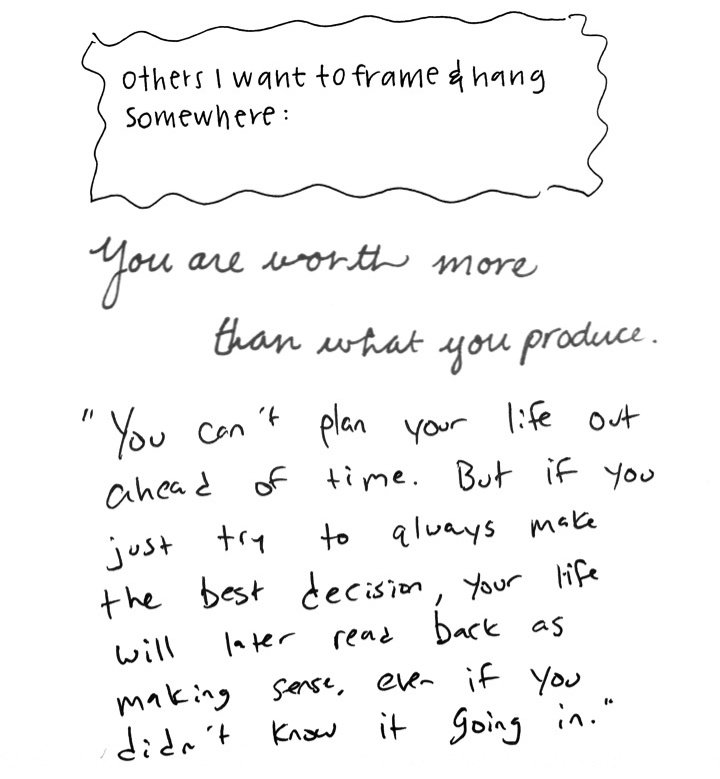 others I want to frame & hang
somewhere:
You are worth more
than what you produce.
"You can't plan your life out
ahead of time. But if you
just try to always make
the best decision, your life
will later read back as
making sense, even if you
didn't know it going in."